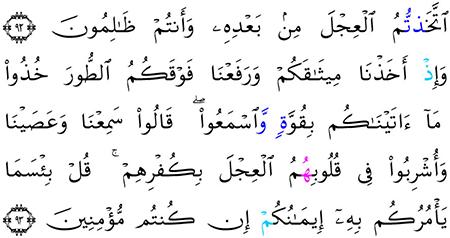 ٱتَّخَذتُّمُ ٱلْعِجْلَ مِنۢ بَعْدِهِۦ وَأَنتُمْ ظَـٰلِمُونَ ﴿٩٢﴾
وَإِذْ أَخَذْنَا مِيثَـٰقَكُمْ وَرَفَعْنَا فَوْقَكُمُ ٱلطُّورَ خُذُوا۟
مَآ ءَاتَيْنَـٰكُم بِقُوَّةٍ وَّٱسْمَعُوا۟ ۖ قَالُوا۟ سَمِعْنَا وَعَصَيْنَا
وَأُشْرِبُوا۟ فِى قُلُوبِهُمُ ٱلْعِجْلَ بِكُفْرِهِمْ ۚ قُلْ بِئْسَمَا
يَأْمُرُكُم بِهِۦٓ إِيمَـٰنُكُمْ إِن كُنتُم مُّؤْمِنِينَ ﴿٩٣﴾